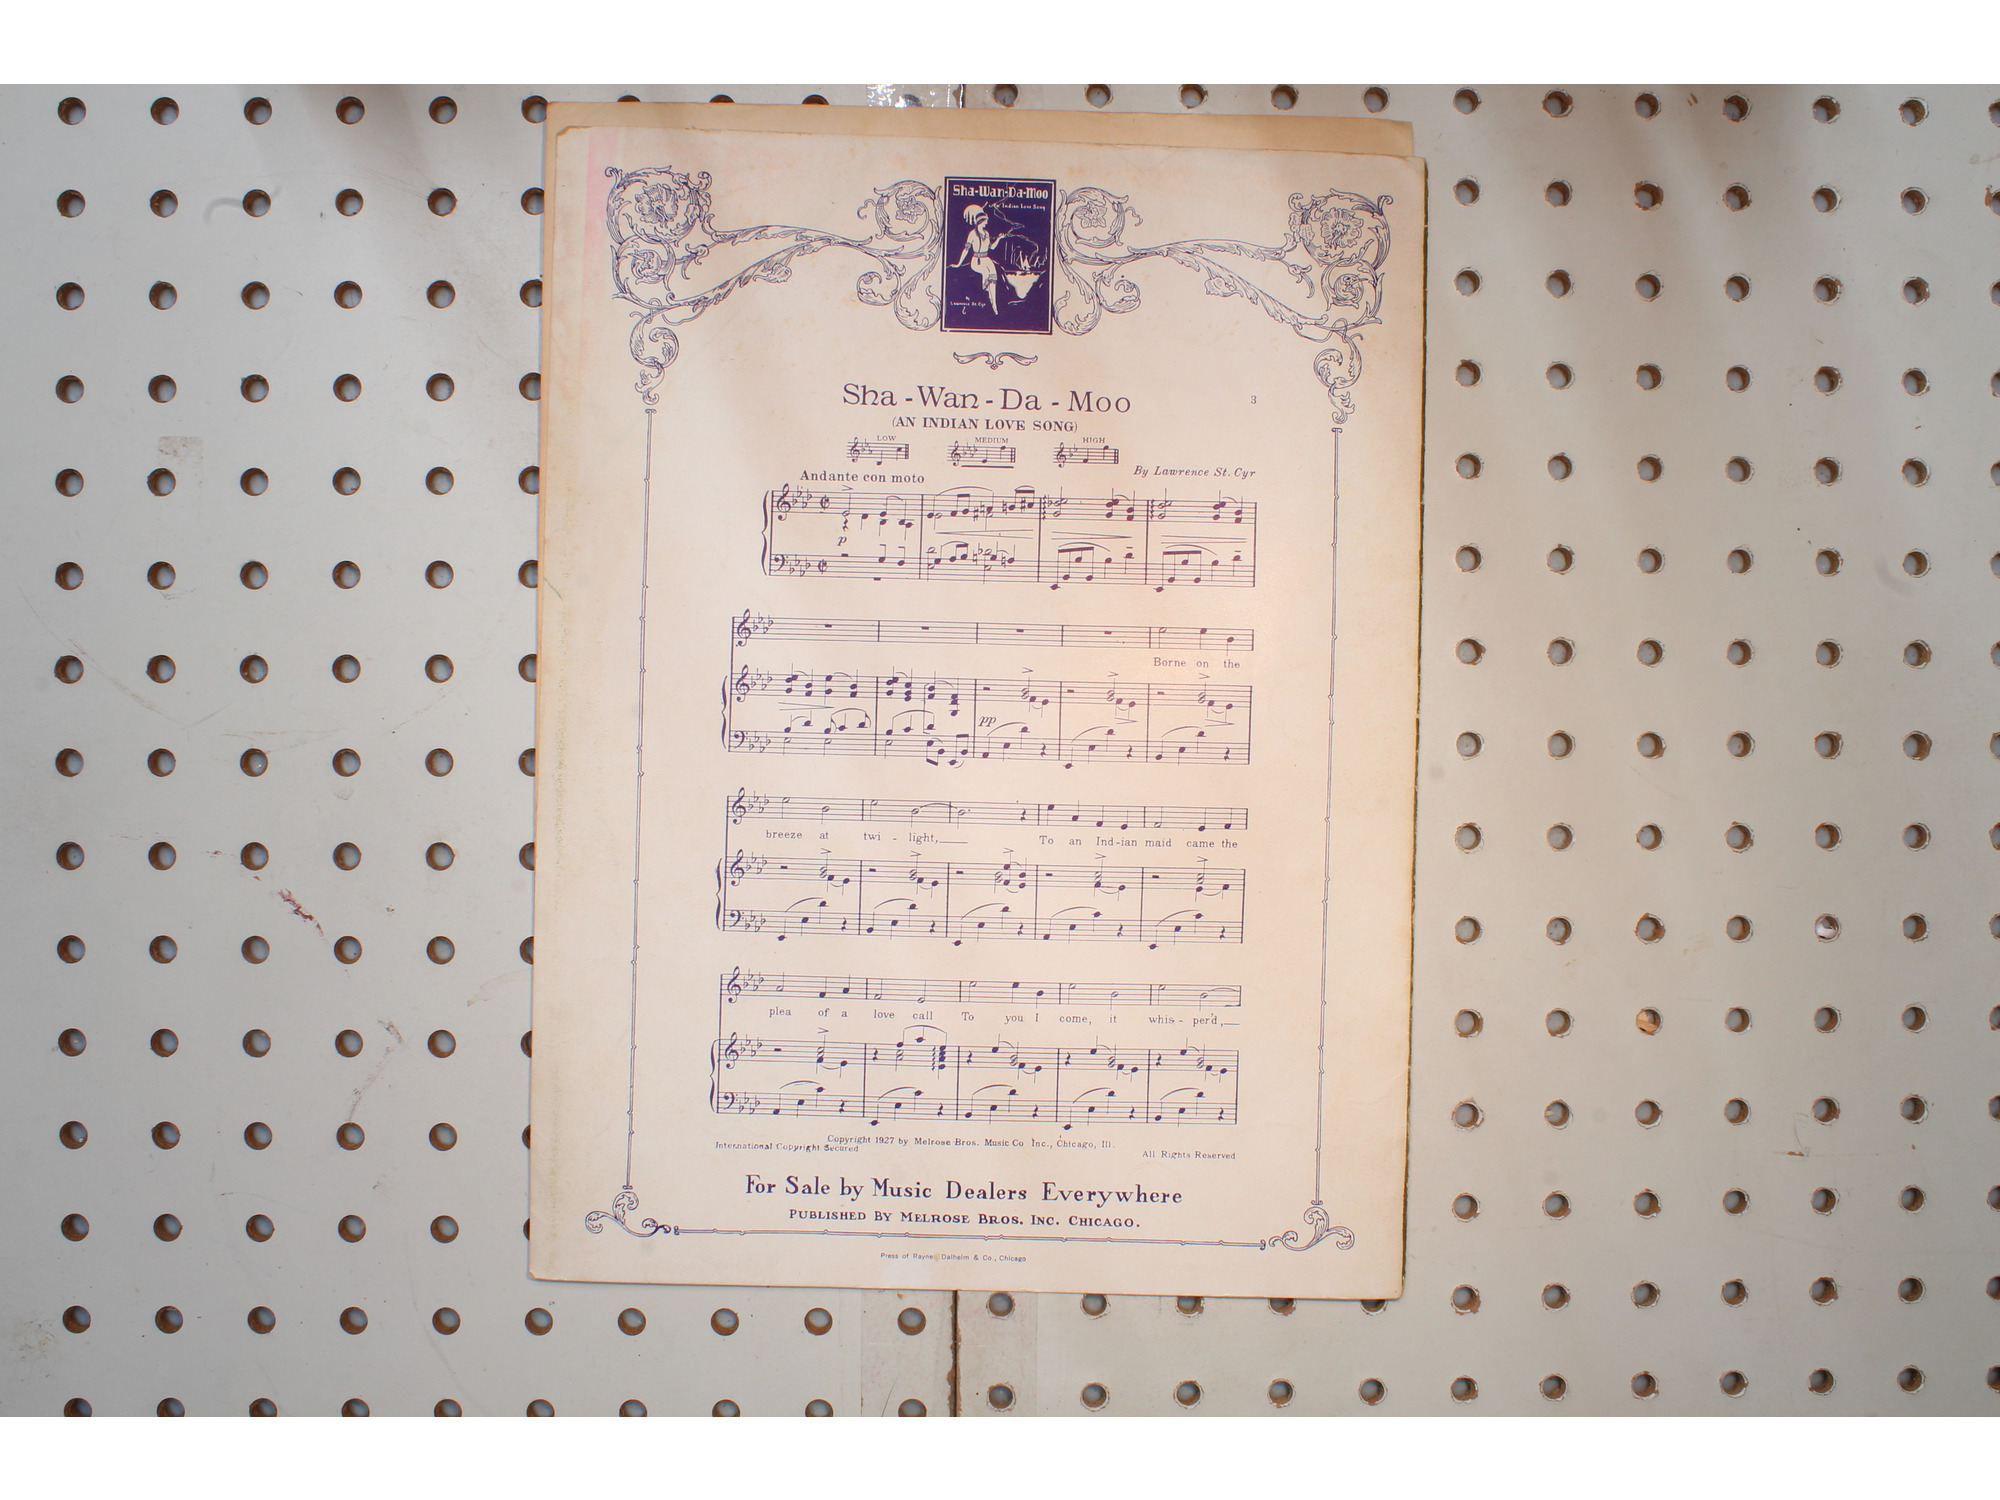 Sha-Wan-Da-Moo
An Indian Love Song
by
Lawrence St. Cyr
Sha - Wan - Da - Moo
3
(AN INDIAN LOVE SONG)
LOW MEDIUM HIGH
By Lawrence St. Cyr
Andante con moto
p
Borne on the
pp
breeze at twi - light, To an Ind-ian maid came the
plea of a love call To you I come, it whis - per'd,
Copyright 1927 by Melrose Bros. Music Co Inc., Chicago, Ill.
International Copyright Secured
All Rights Reserved
For Sale by Music Dealers Everywhere
PUBLISHED BY MELROSE BROS. INC. CHICAGO.
Press of Rayner Dalheim & Co., Chicago